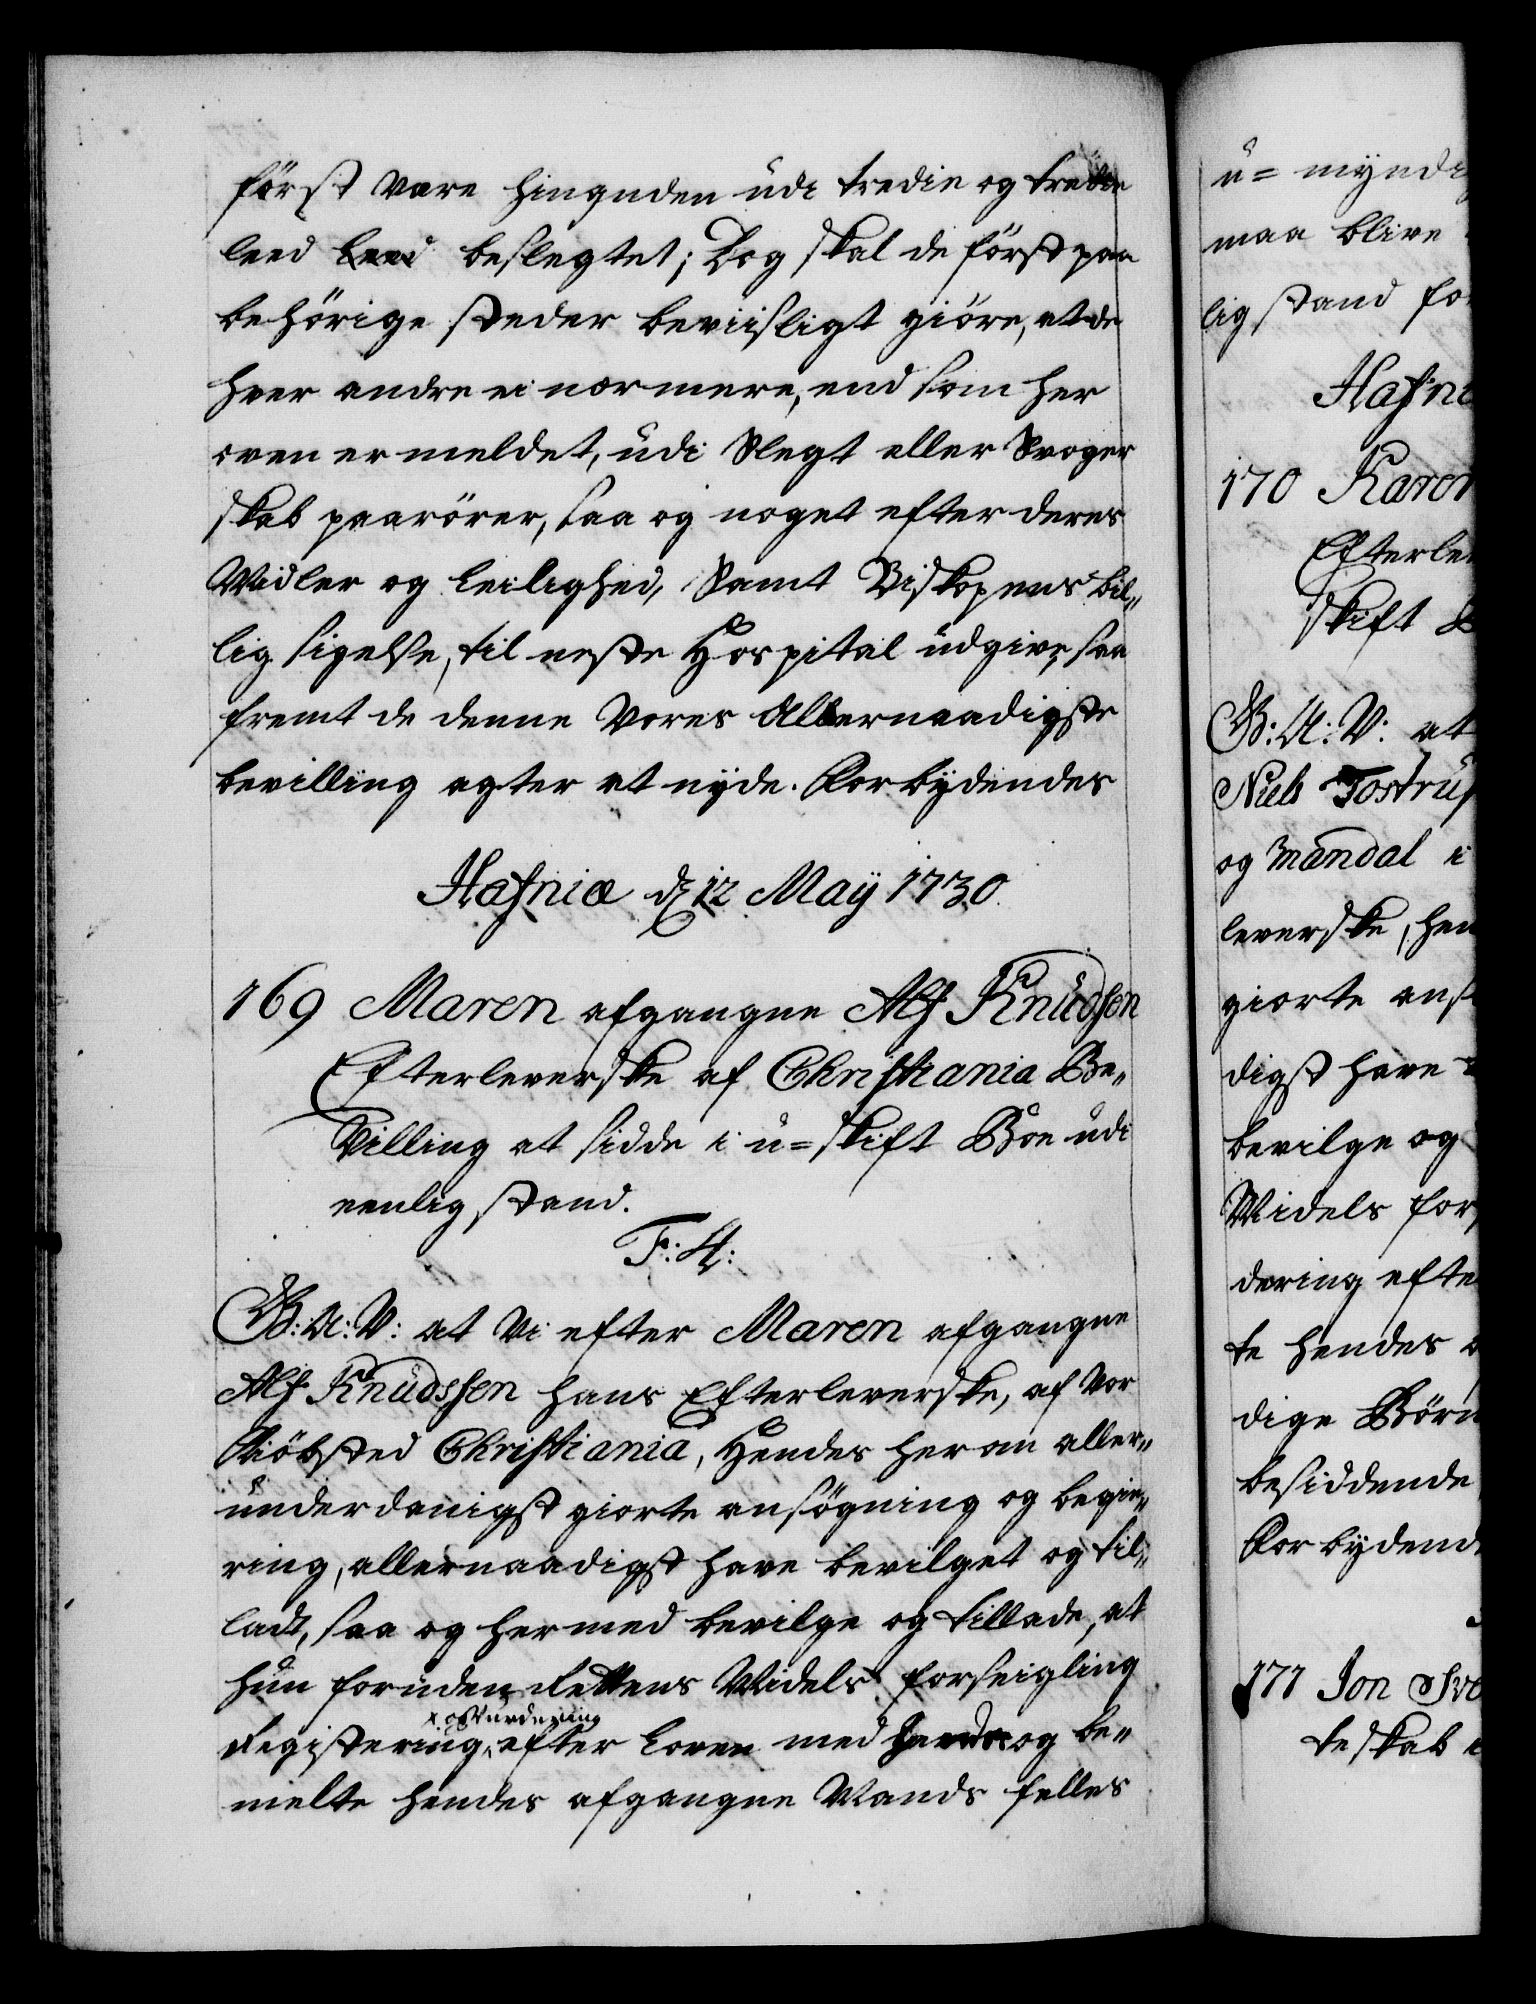 först vare hinanden udi tredie og tredie
leed leed beslegtet; Dog skal de först paa
behörige steder beviisligt giöre, at de
hver andre ei nærmere, end som her
oven er meldet, udi Slegt eller Svoger
skab paarörer, saa og noget efter deres
Midler og leilighed, Samt Biskopens bil„
lig sigelse, til neste Hospital udgive, saa
fremt de denne Vores Allernaadigste
bevilling agter at nyde. Forbydendes
Hafniæ d 12 Maÿ 1730.
169 Maren afgangne Alf Knudsen
Efterleverske af Christiania Be„
Villing at sidde i u=skift Boe udi
eenlig stand.
F: 4:
G: A: V: at Vi efter Maren afgangne
Alf Knudssen hans Efterleverske, af Vor
Kiöbsted Christiania, Hendes herom aller„
underdanigst giorte ansögning og begie„
ring, allernaadigst have bevilget og til„
ladt, saa og hermed bevilge og tillade, at
hun foruden Rettens Middels forseigling
x og Vurdering
Registering, efter Loven med hende og be„
melte hendes afgangne Mands felles
u= myndi
maa blive
lig stand for
Hafni
170 Karen
Efterle
skift B
G: A: V: at
Niels Tostrup
og Mandal i
leverske, hen
giorte ans
digst have
bevilge og
Midels for
dering efte
te hendes
dige Börn
besiddende
Forbydend
171 Jon Sve
teskab i